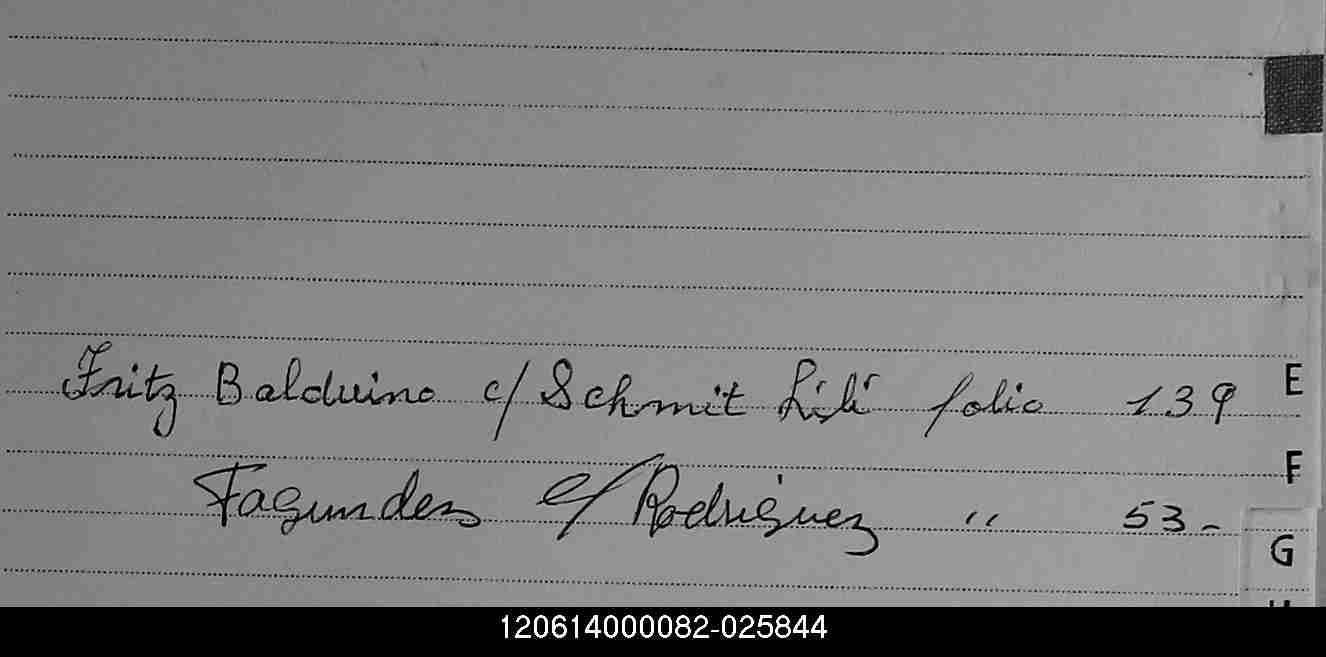 Fritz Balduino c/ Schmit Lili folio 139
E
F
Fagundez c/ Rodriguez " 53-
G
120614000082-025844